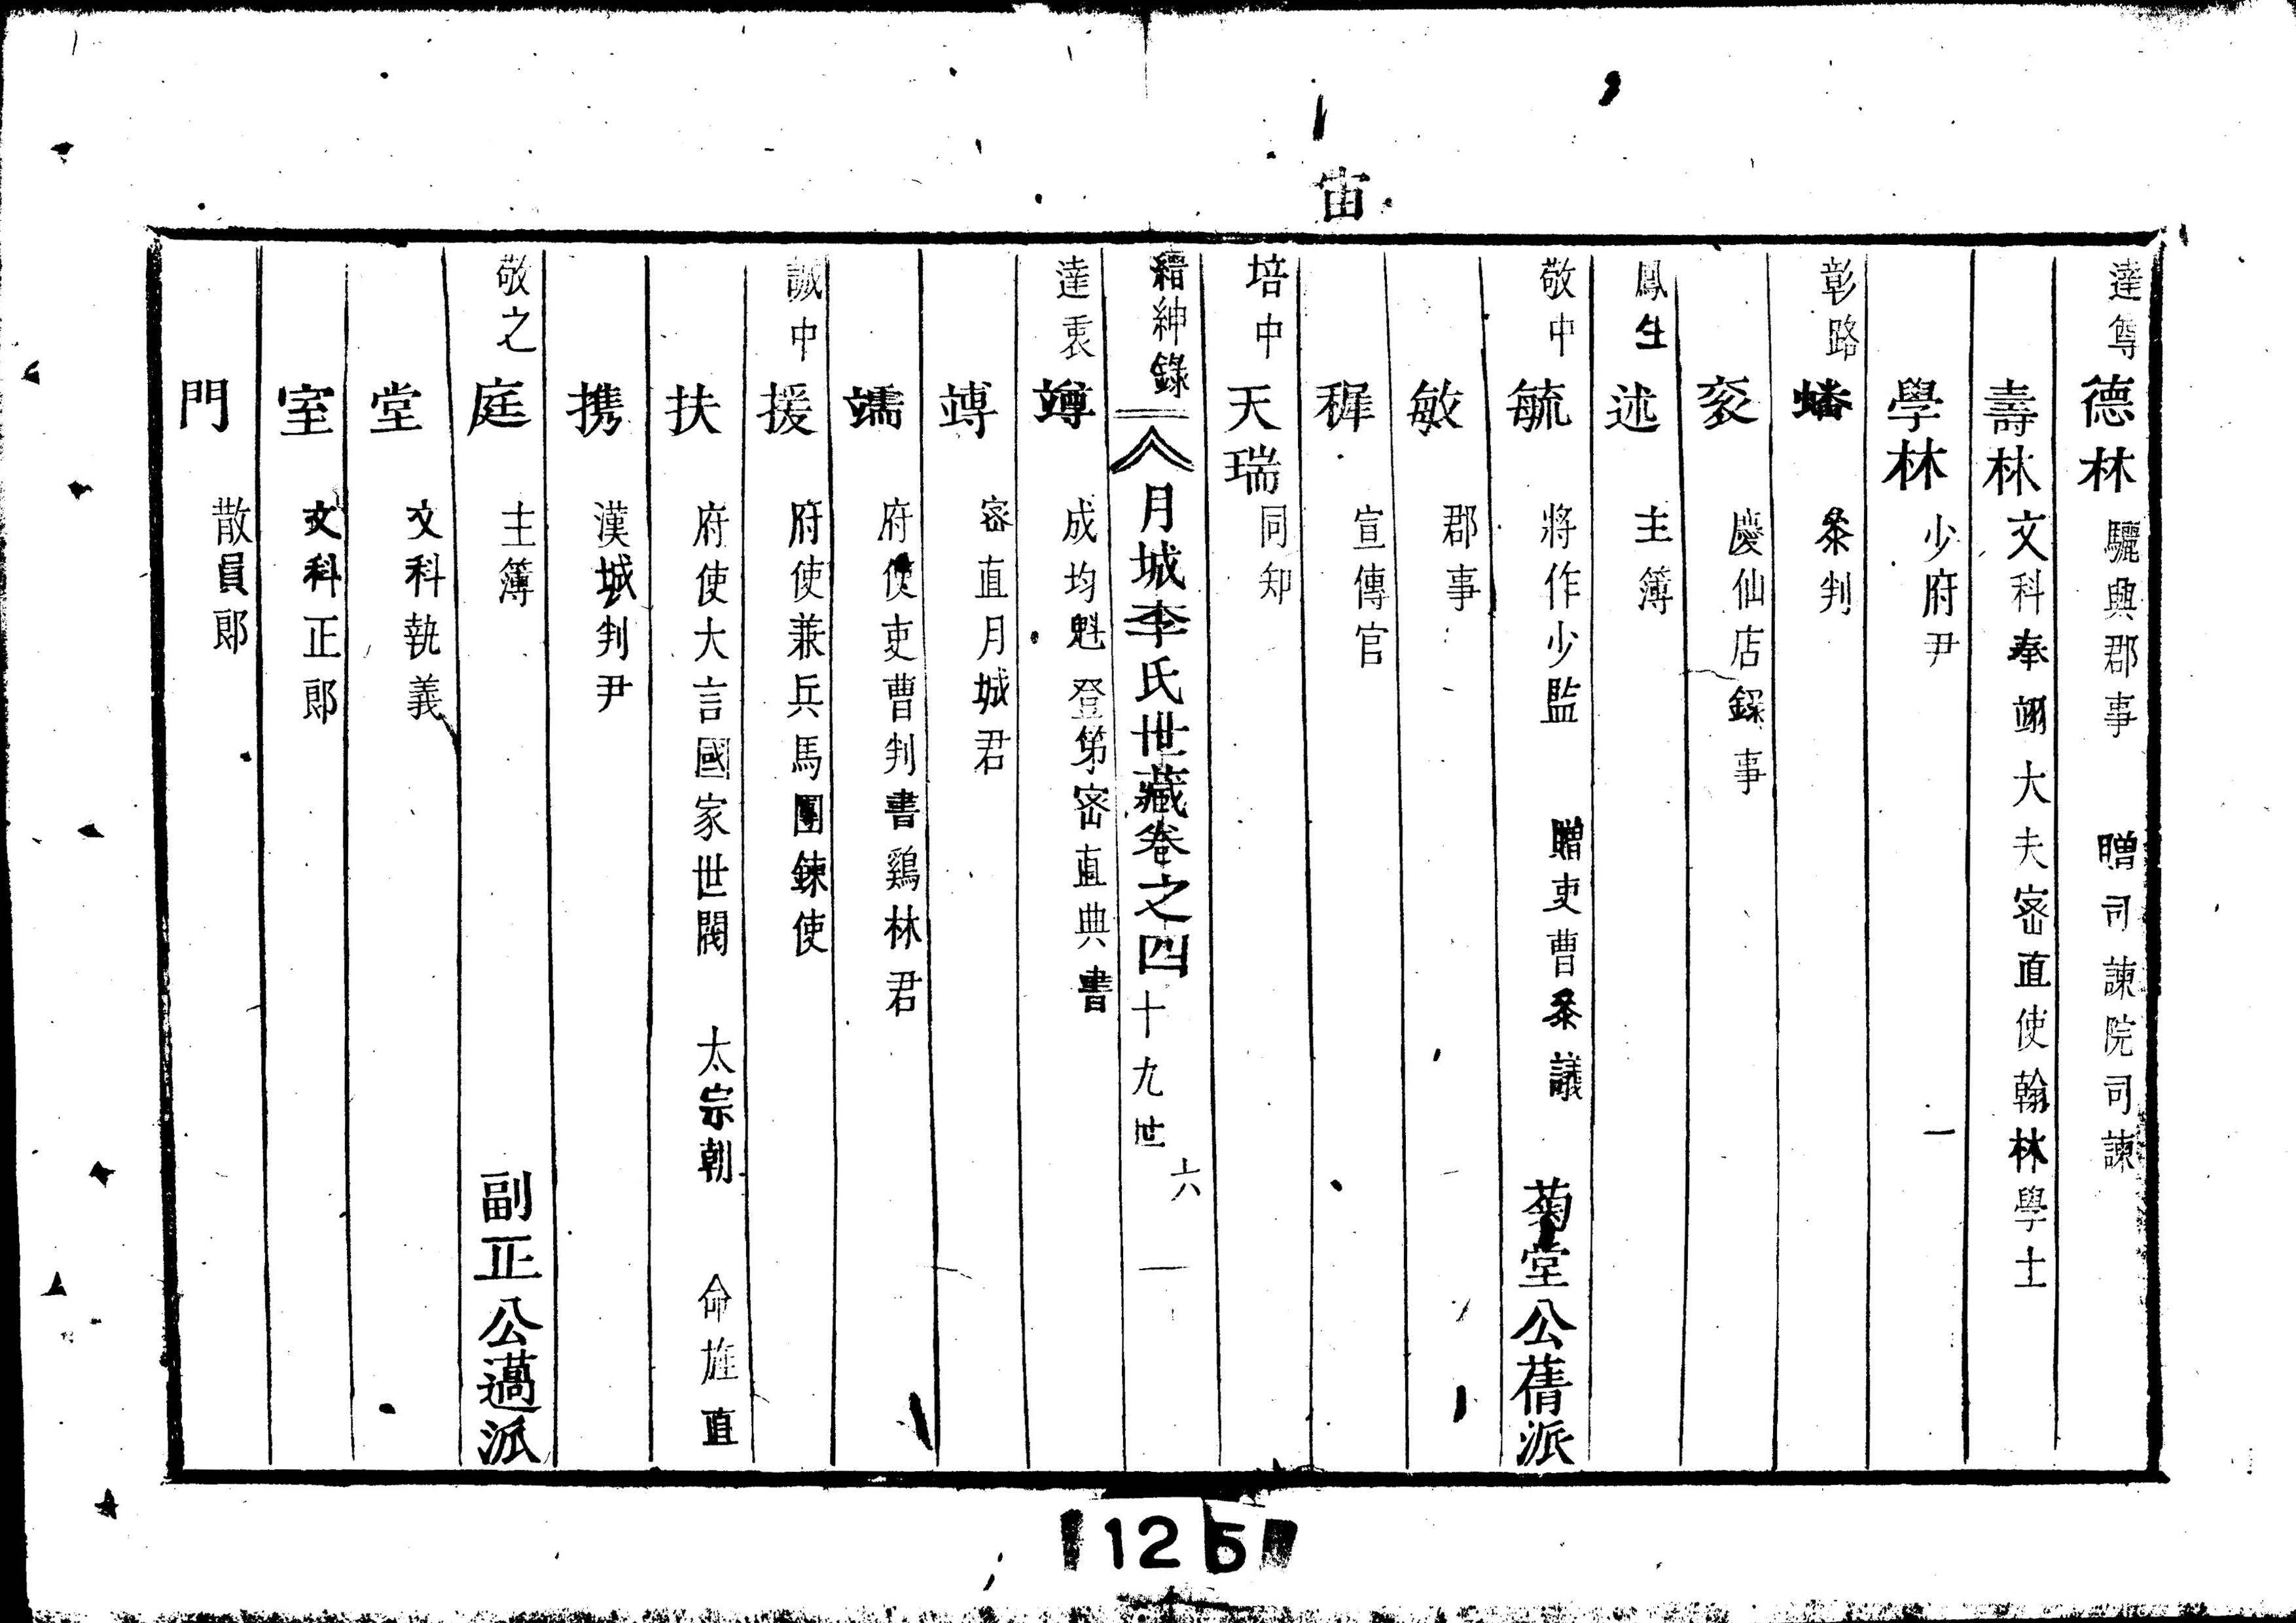 宙
達尊 德林 驪興郡事 贈司諫院司諫
壽林 文科奉翊大夫密直使翰林學士
學林 少府尹
彰路 蟠 叅判
袞 慶仙店錄事
鳳生 述 主簿
敬中 毓 將作少監 贈吏曹叅議 菊堂公蒨派
敏 郡事
穉 宣傳官
培中 天瑞 同知
縉紳錄 月城李氏世藏卷之四 十九世 六
達衷 竴 成均魁登第密直典書
竱 密直月城君
䇕 府使吏曹判書鷄林君
誠中 援 府使兼兵馬團鍊使
扶 府使大言國家世閥 太宗朝 命旌直
携 漢城判尹
敬之 庭 主簿 副正公薖派
堂 文科執義
室 文科正郞
門 散員郞
125